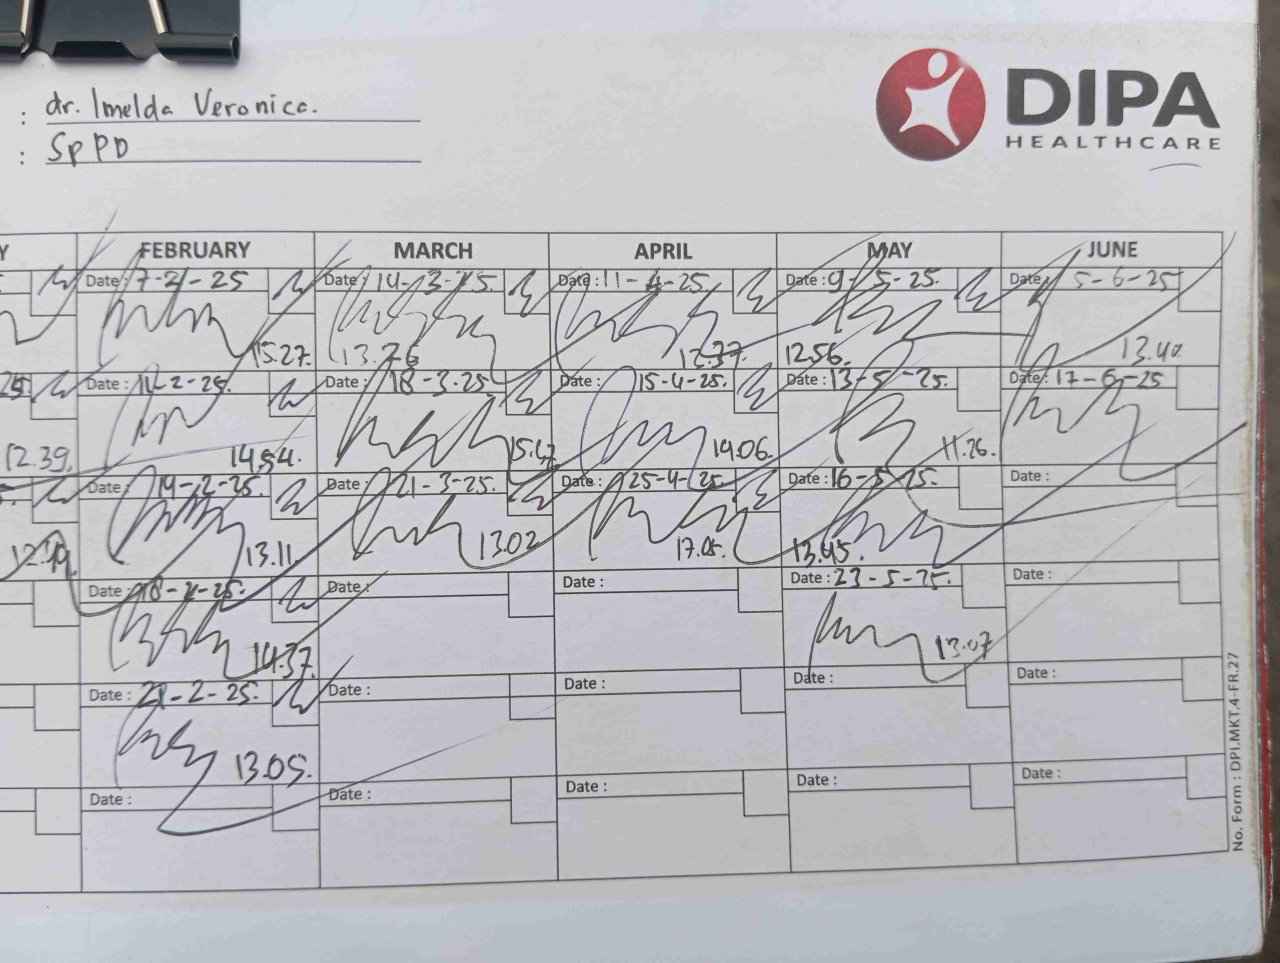 : dr. Imelda Veronica.
: SpPD
DIPA
HEALTHCARE
Y FEBRUARY MARCH APRIL MAY JUNE
Date : 7-2-25 Date : 14-3-25. Date : 11-4-25. Date : 9-5-25. Date : 5-6-25
15.27. 13.26 12.37. 12.56. 13.40
Date : 11-2-25. Date : 18-3-25. Date : 15-4-25. Date : 13-5-25. Date : 17-6-25
12.39. 14.54. 15.47 14.06. 11.26.
Date : 14-2-25. Date : 21-3-25. Date : 25-4-25. Date : 16-5-25. Date :
13.11. 13.02 17.05. 13.45.
Date : 18-2-25. Date : Date : Date : 23-5-25. Date :
14.37. 13.07
Date : 21-2-25. Date : Date : Date : Date :
13.05.
Date : Date : Date : Date : Date :
No. Form : DPI.MKT.4-FR.27